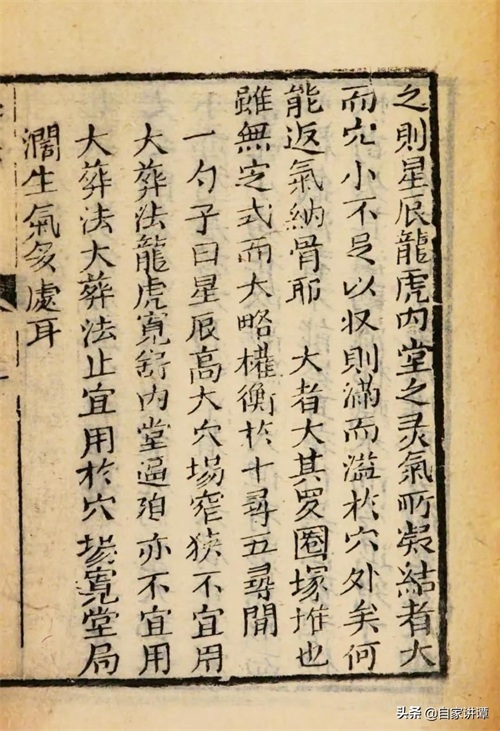 之則星辰龍虎内堂之灵氣所凝結者大
而穴小不足以収則滿而溢於穴外矣何
能返氣納骨耶　大者大其罗圈塚堆也
雖無定式而大略權衡於十尋五尋間
一勺子曰星辰高大穴場窄狹不宜用
大葬法龍虎寬舒内堂逼迫亦不宜用
大葬法大葬法止宜用於穴場寬堂局
濶生氣多處耳
头条@自家讲谭